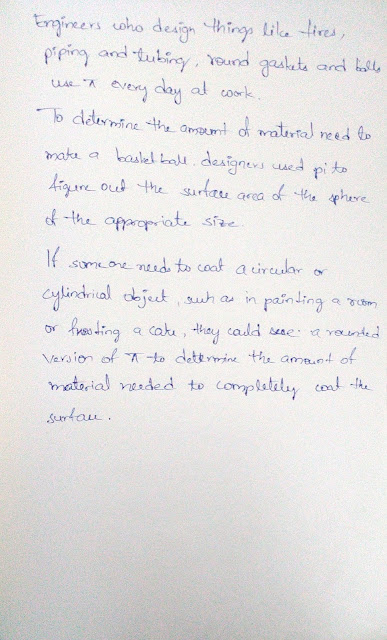 Engineers who design things like tires,
piping and tubing, round gaskets and balls
use π every day at work.
To determine the amount of material need to
make a basket ball. designers used pi to
figure out the surface area of the sphere
of the appropriate size
If some one needs to coat a circular or
cylindrical object, such as in painting a room
or frosting a cake, they could use a rounted
version of π to determine the amount of
material needed to completely coat the
surface.